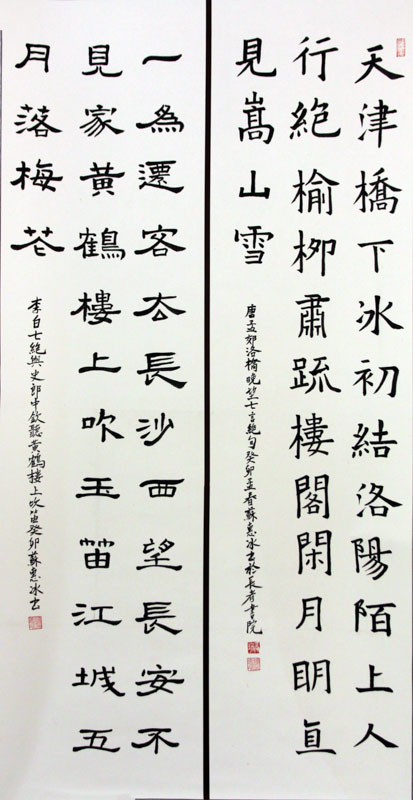 天津橋下冰初結洛陽陌上人
行絕榆栁肅疏樓閣閑月眀直
見嵩山雪
唐孟郊洛橋晚望七言絕句癸卯孟春蘇惠冰书於長者書院
一為遷客去長沙西望長安不
見家黃鶴樓上吹玉笛江城五
月落梅花
李白七絕與史郎中欽聽黃鶴樓上吹笛癸卯蘇惠冰书